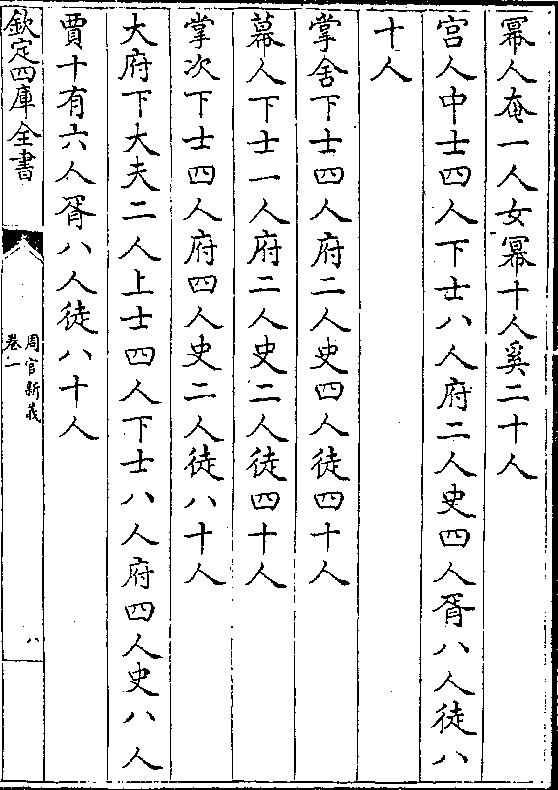 冪人奄一人女冪十人奚二十人
宫人中士四人下士八人府二人史四人胥八人徒八
十人
掌舍下士四人府二人史四人徒四十人
幕人下士一人府二人史二人徒四十人
掌次下士四人府四人史二人徒八十人
大府下大夫二人上士四人下士八人府四人史八人
賈十有六人胥八人徒八十人
欽定四庫全書
周官新義
卷一
八